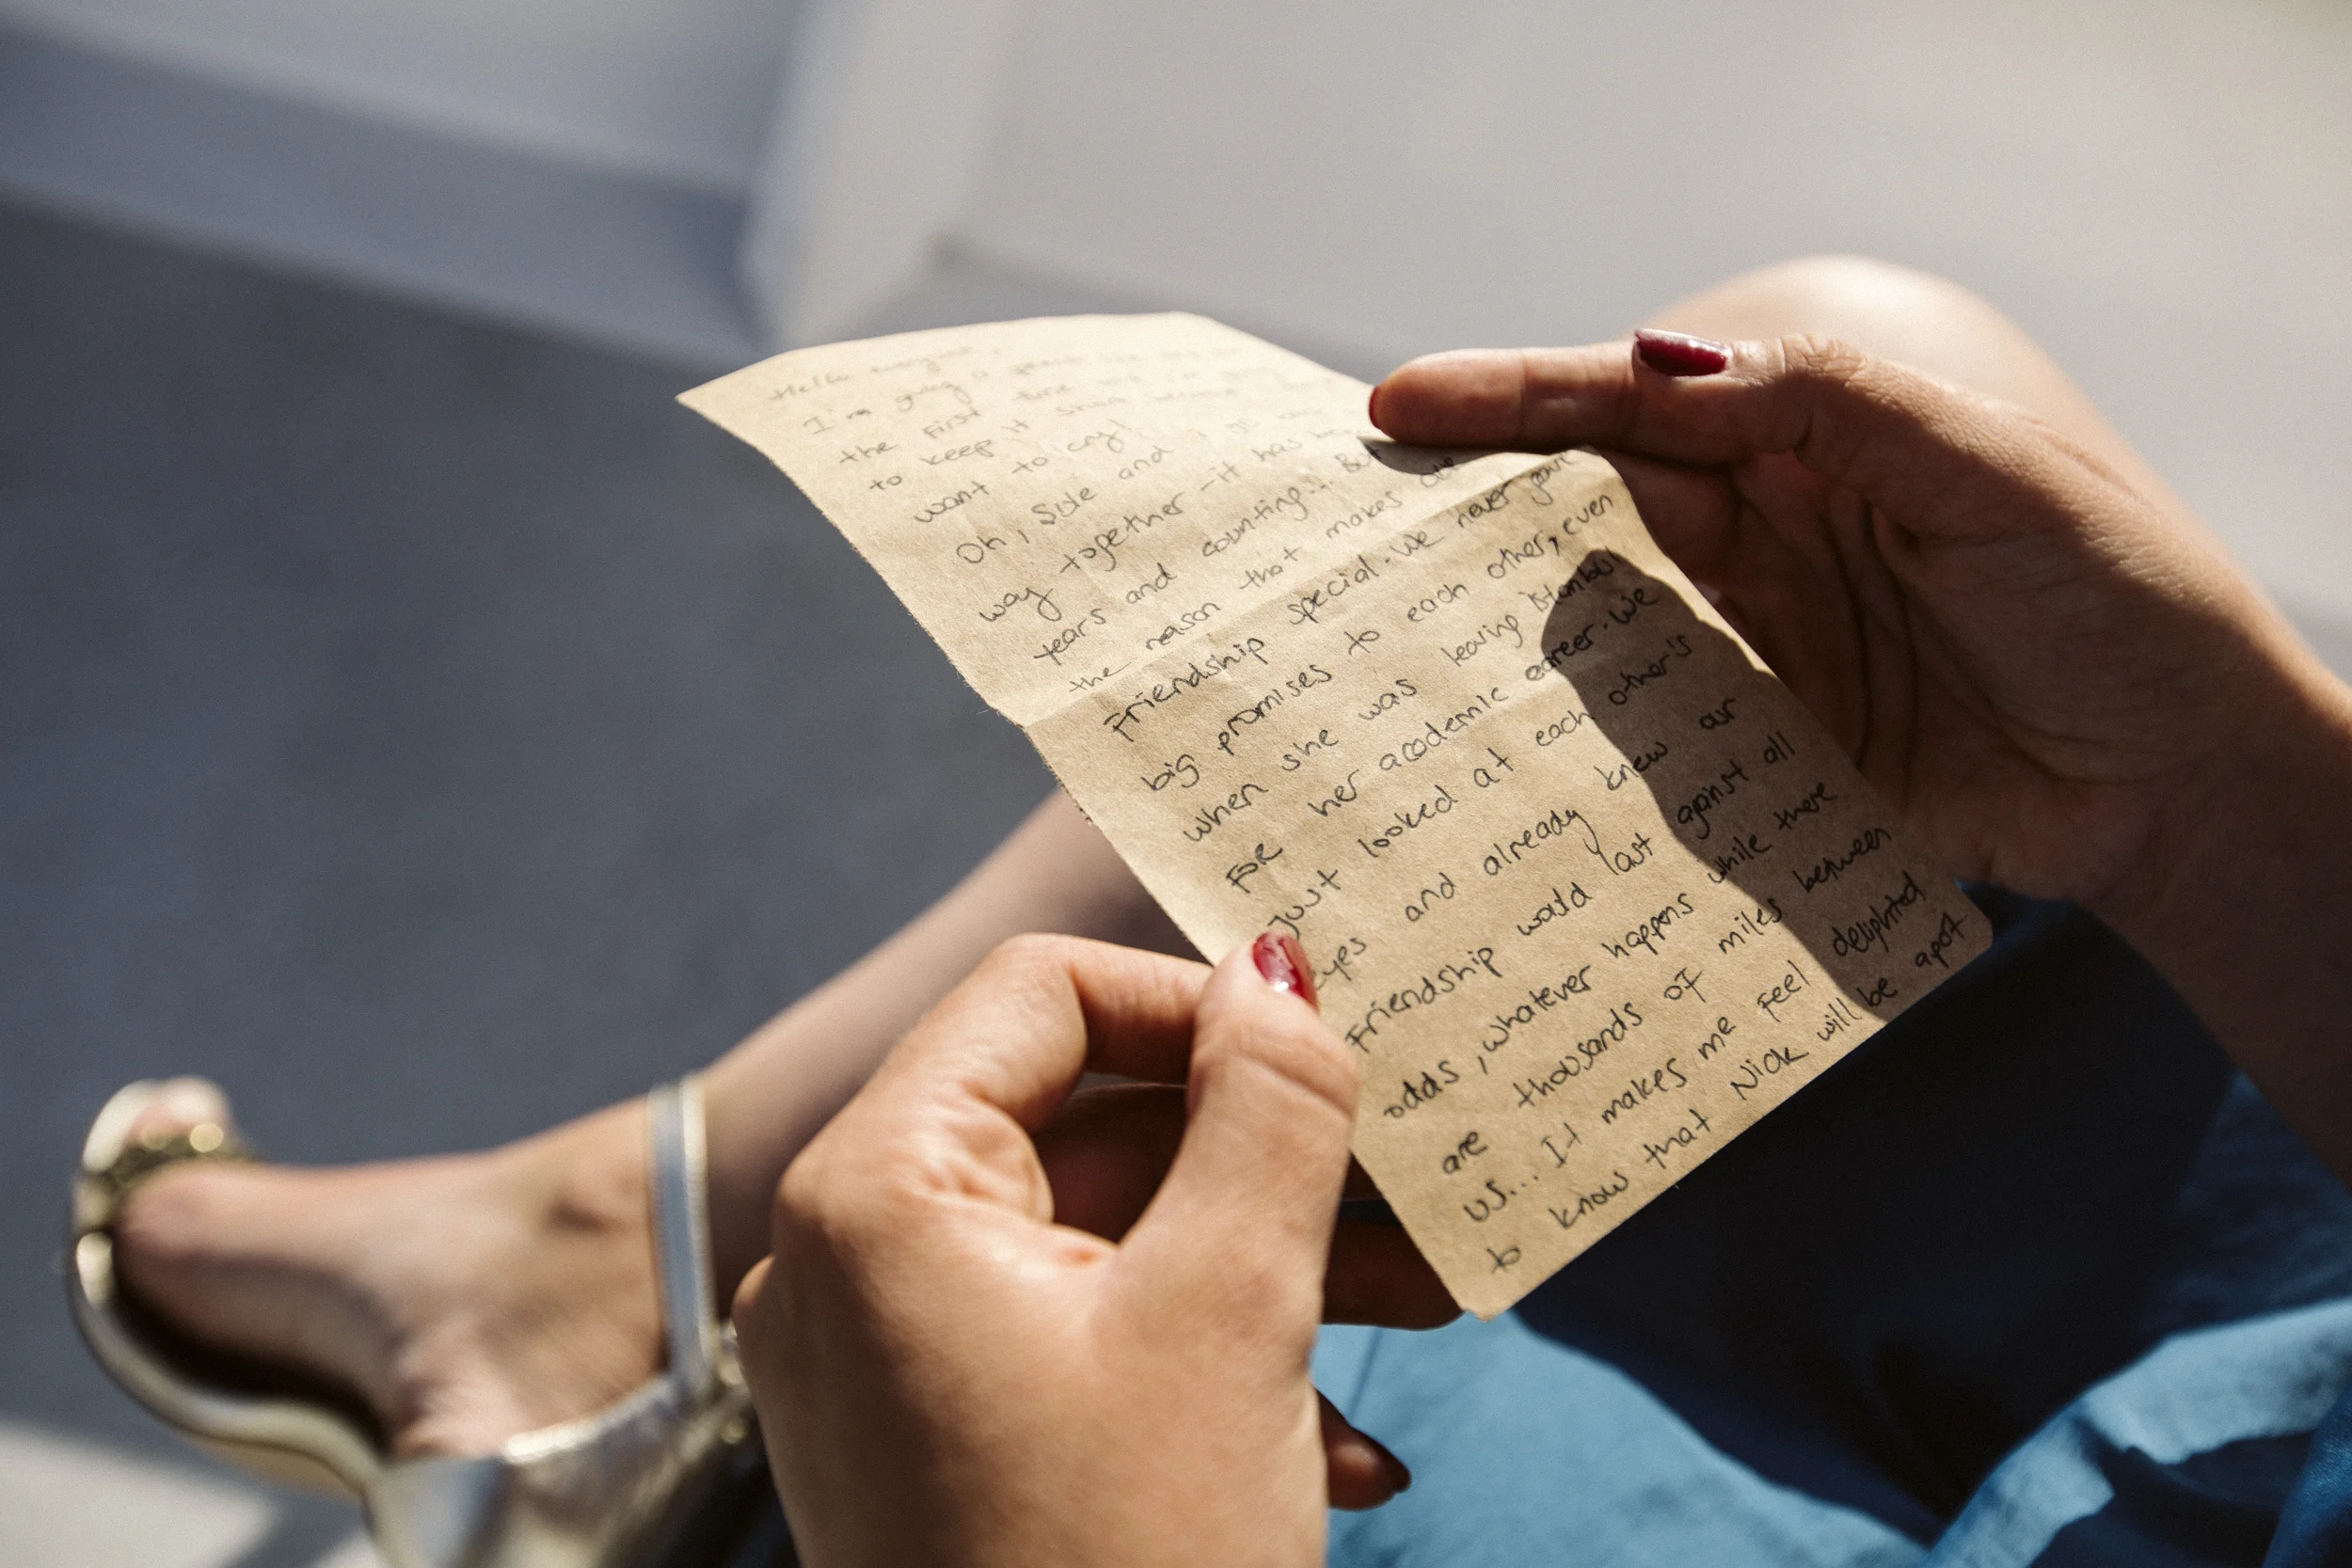 Hello everyone,
I'm giving a speech
the first time
to keep it short because
want to cry!
Oh, Side and I go
way together - it has be
years and counting... But
the reason that makes our
Friendship special. We never gave
big promises to each other, even
when she was leaving Istanbul
For her academic career. We
just looked at each other's
eyes and already knew our
Friendship would last against all
odds, whatever happens while there
are thousands of miles between
us... It makes me feel delighted
to know that Nick will be apart